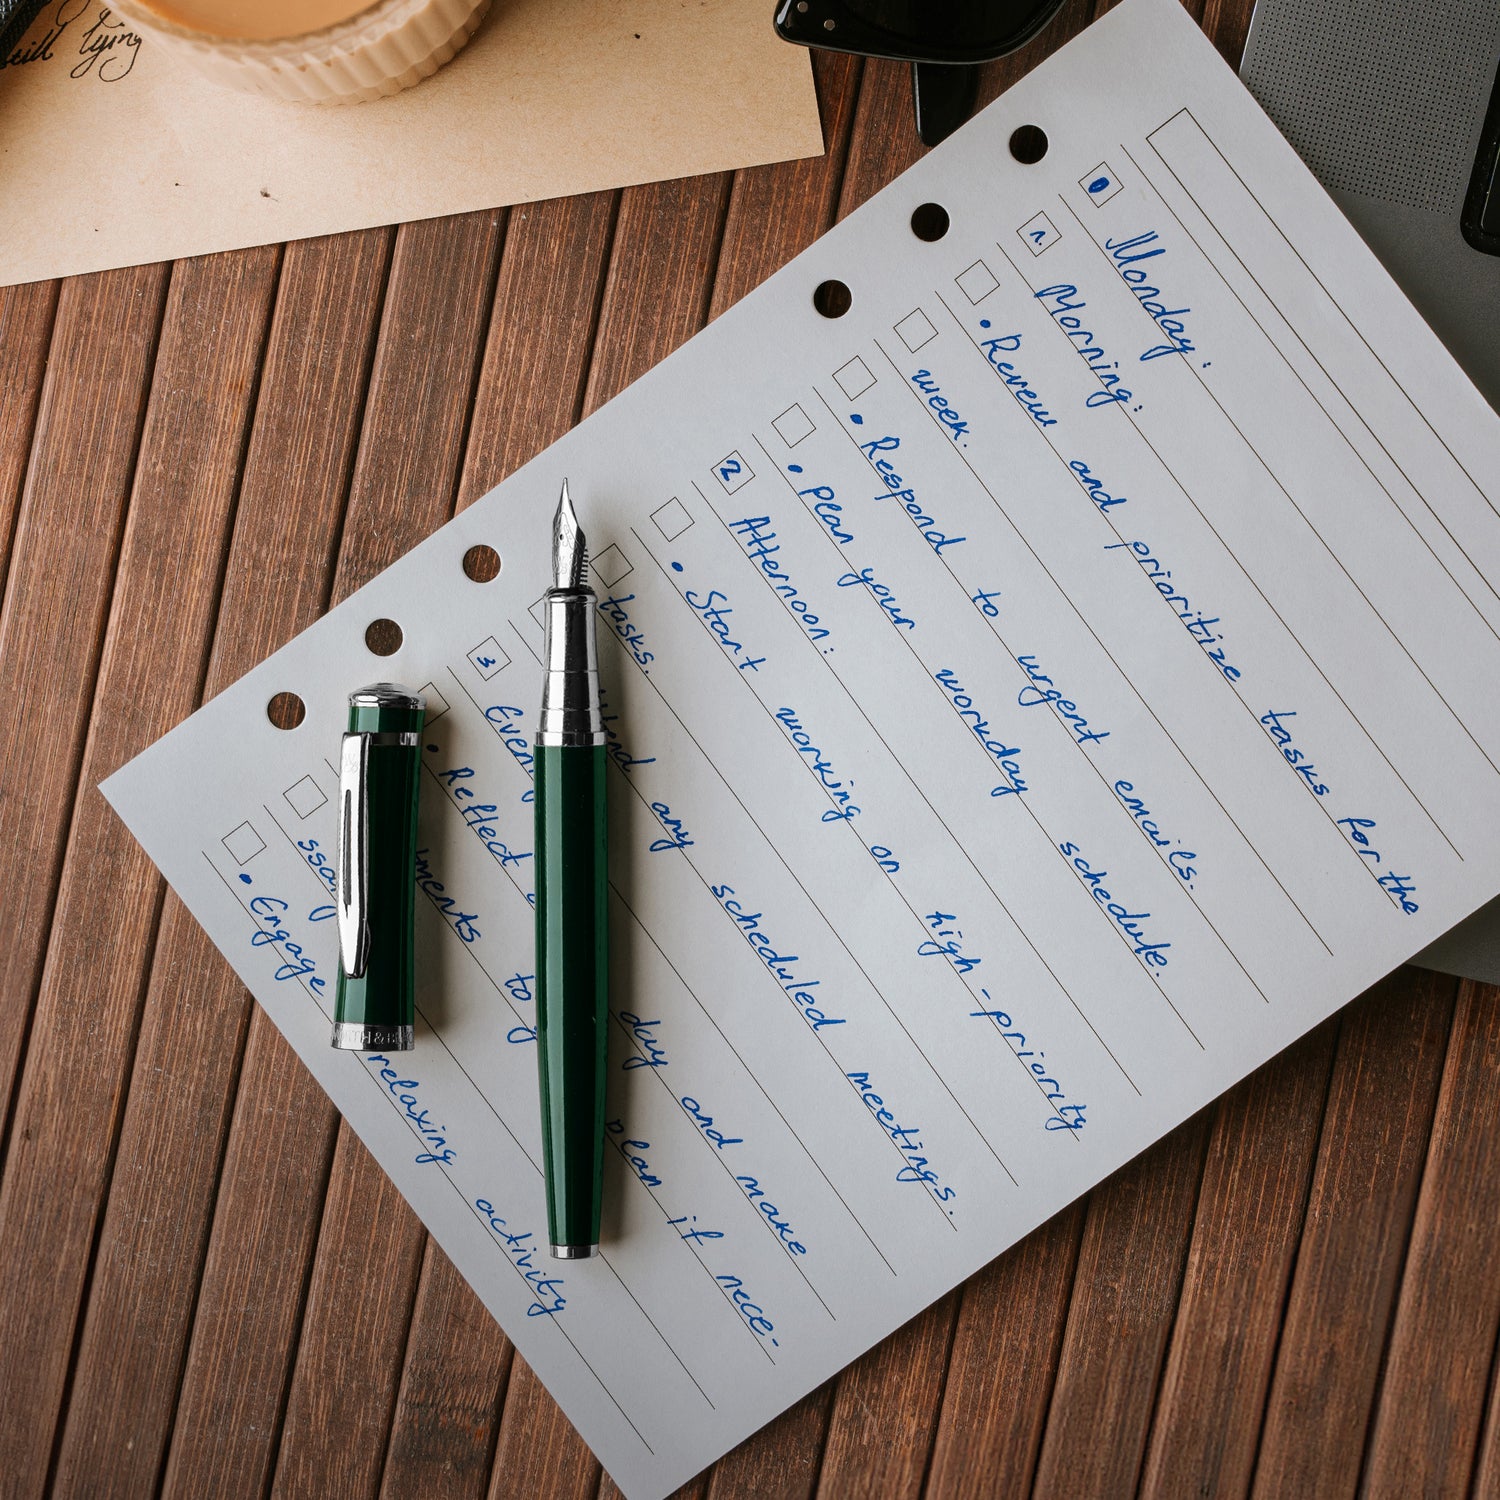 still lying
Monday:
1. Morning:
• Review and prioritize tasks for the
week.
• Respond to urgent emails.
• plan your workday schedule.
2 Afternoon:
• Start working on high-priority
tasks.
any scheduled meetings.
3 Even
• Reflect day and make
ments to plan if nece-
ssa
• Engage relaxing activity